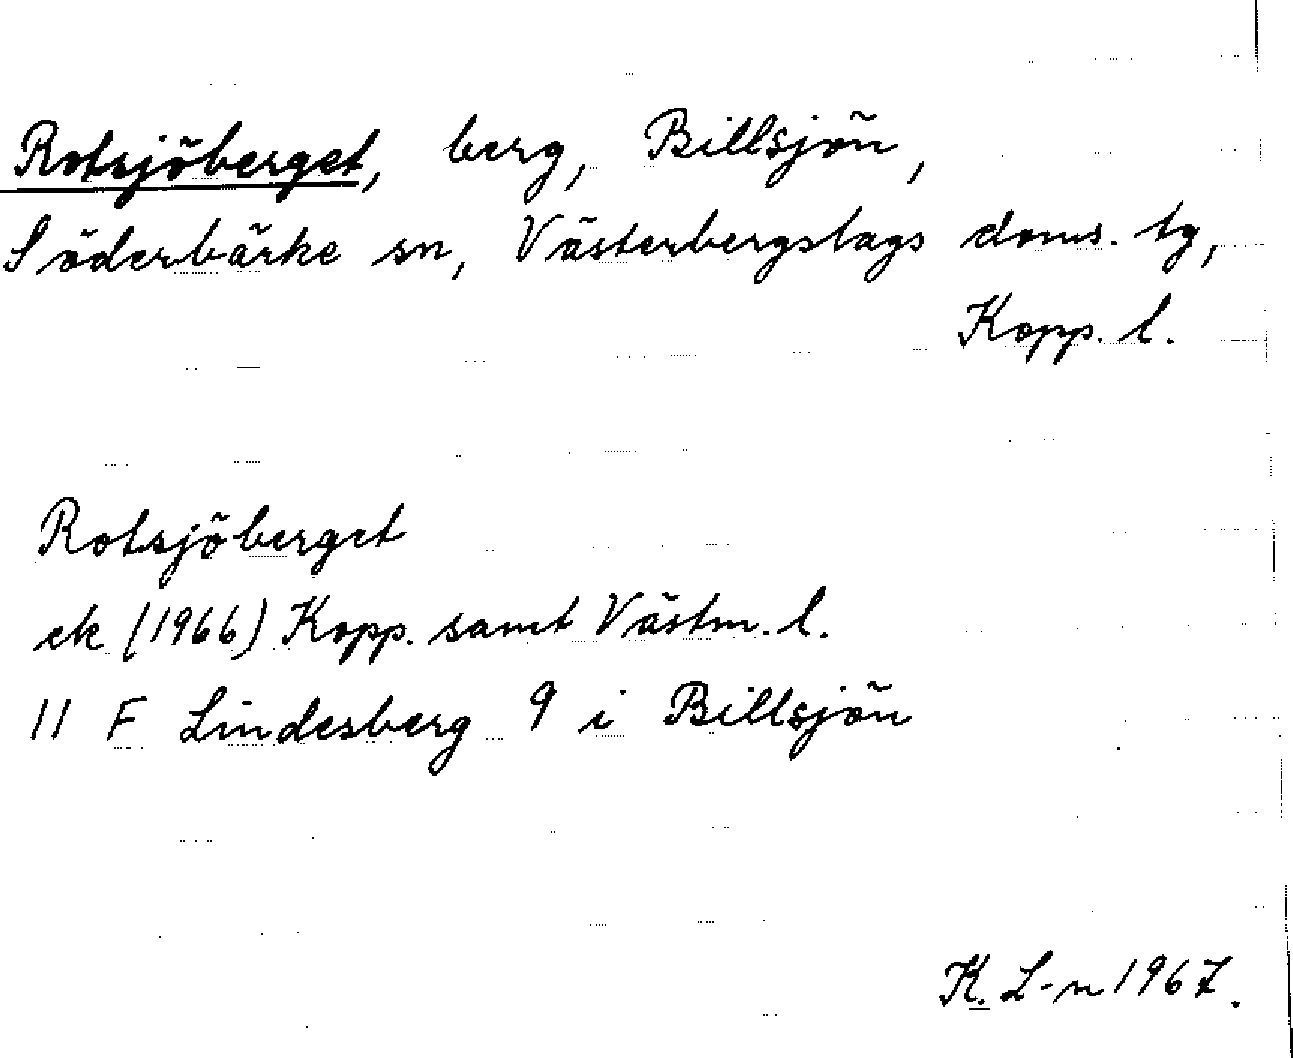 Rotsjöberget, berg, Billsjön,
Söderbärke sn, Västerbergslags doms. tg,
Kopp. l.
Rotsjöberget
ek (1966) Kopp. samt Västm. l.
11 F Lindesberg 9 i Billsjön
K. L-n 1967.